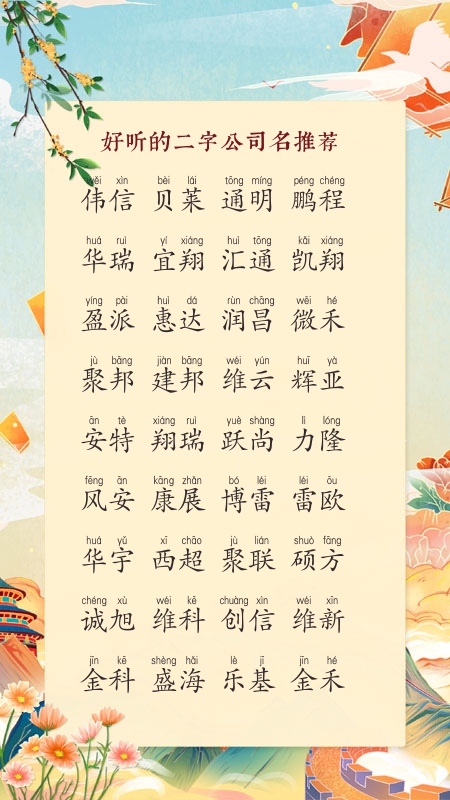 好听的二字公司名推荐
wěi xìn bèi lái tōng míng péng chéng
伟信 贝莱 通明 鹏程
huá ruì yí xiáng huì tōng kǎi xiáng
华瑞 宜翔 汇通 凯翔
yíng pài huì dá rùn chāng wēi hé
盈派 惠达 润昌 微禾
jù bāng jiàn bāng wéi yún huī yà
聚邦 建邦 维云 辉亚
ān tè xiáng ruì yuè shàng lì lóng
安特 翔瑞 跃尚 力隆
fēng ān kāng zhǎn bó léi léi ōu
风安 康展 博雷 雷欧
huá yǔ xī chāo jù lián shuò fāng
华宇 西超 聚联 硕方
chéng xù wéi kē chuàng xìn wéi xīn
诚旭 维科 创信 维新
jīn kē shèng hǎi lè jī jīn hé
金科 盛海 乐基 金禾